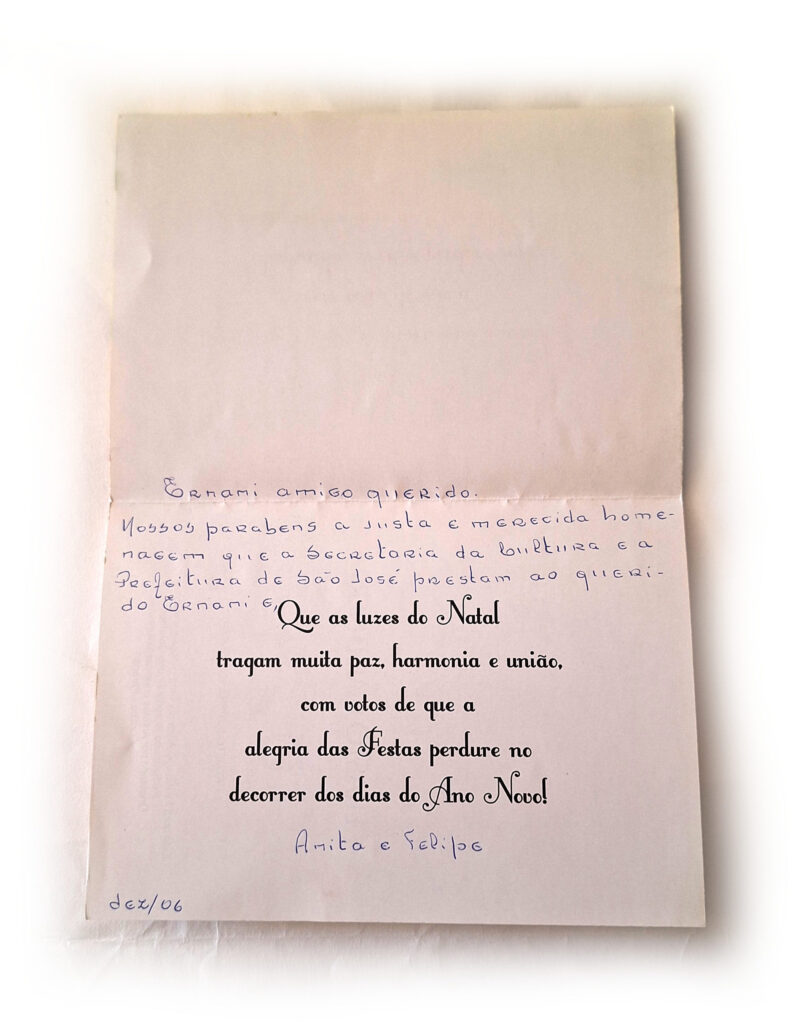 Ernani amigo querido.
Nossos parabens a justa e merecida home-
nagem que a Secretaria da Cultura e a
Prefeitura de São José prestam ao queri-
do Ernani e,
Que as luzes do Natal
tragam muita paz, harmonia e união,
com votos de que a
alegria das Festas perdure no
decorrer dos dias do Ano Novo!
Anita e Felipe
dez/06